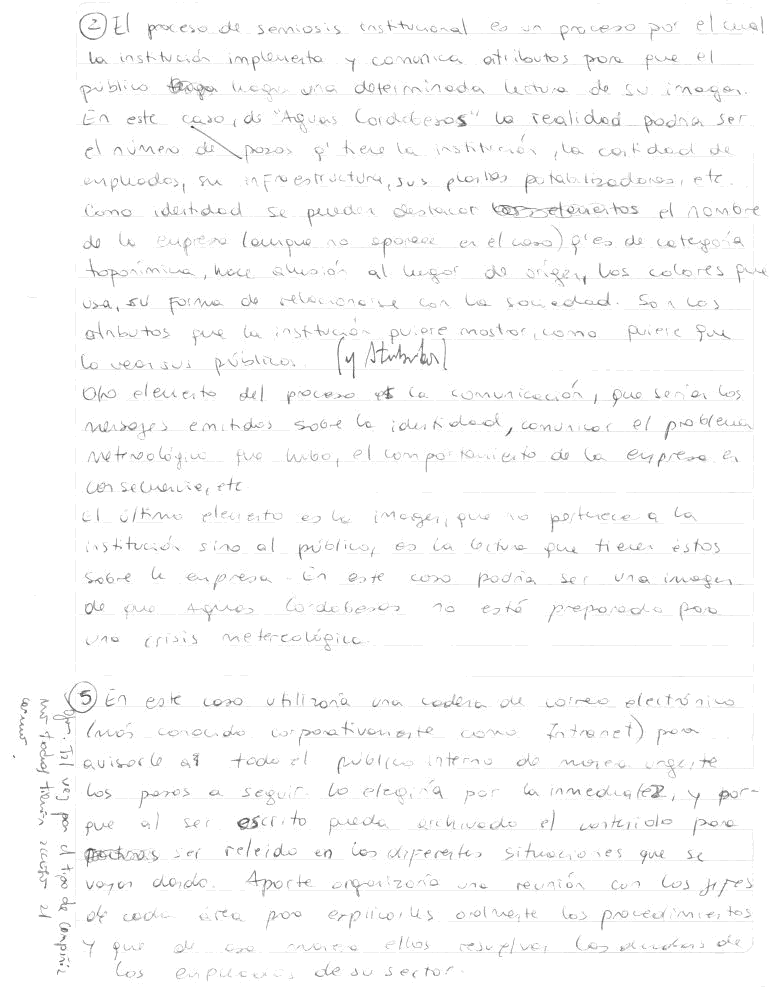 ② El proceso de semiosis institucional es un proceso por el cual
la institución implementa y comunica atributos para que el
público haga una determinada lectura de su imagen.
En este caso, de "Aguas Cordobesas" la realidad podría ser
el número de pozos q' tiene la institución, la cantidad de
empleados, su infraestructura, sus plantas potabilizadoras, etc.
Como identidad se pueden destacar los elementos el nombre
de la empresa (aunque no aparece en el caso) q' es de categoría
toponímica, hace alusión al lugar de origen, los colores que
usa, su forma de relacionarse con la sociedad. Son los
atributos que la institución quiere mostrar, como quiere que
lo vean sus públicos. (y Atributos)
Otro elemento del proceso es la comunicación, que serían los
mensajes emitidos sobre la identidad, comunicar el problema
metreológico que hubo, el comportamiento de la empresa en
consecuencia, etc
El último elemento es la imagen, que no pertenece a la
institución sino al público, es la lectura que tienen éstos
sobre la empresa. En este caso podría ser una imagen
de que Aguas Cordobesas no está preparada para
una crisis metereológica.
⑤ En este caso utilizaría una cadena de correo electrónico
(más conocido corporativamente como Intranet) para
avisarle a todo el público interno de manera urgente
los pasos a seguir. Lo elegiría por la inmediatez, y por-
que al ser escrito pueda archivado el contenido para
ser releído en las diferentes situaciones que se
vayan dando. Aparte organizaría una reunión con los jefes
de cada área para explicarles oralmente los procedimientos
y que de esa manera ellos resuelvan las dudas de
los empleados de su sector.
Tal vez por el tipo de Compañía
no todos tienen acceso al
correo.